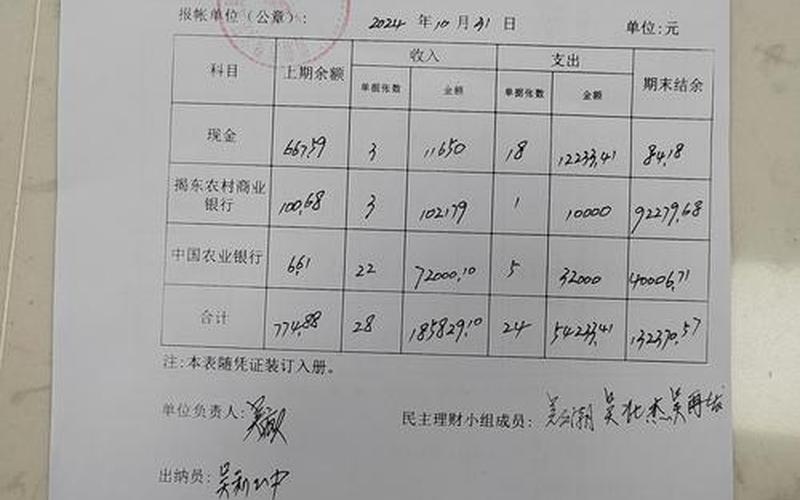 报帐单位（公章）： 2024 年 10 月 31 日 单位：元
科目 上期余额 收入 支出 期末结余
单据张数 金额 单据张数 金额
现金 667.59 3 11650 18 12233.41 84.18
揭东农村商业
银行 100.68 3 102179 1 10000 92279.68
中国农业银行 6.61 22 72000.10 5 32000 40006.71
合计 774.88 28 185829.10 24 54233.41 132370.57
注：本表随凭证装订入册。
单位负责人： 吴
民主理财小组成员： 吴 潮 吴壮杰 吴再
出纳员： 吴 中